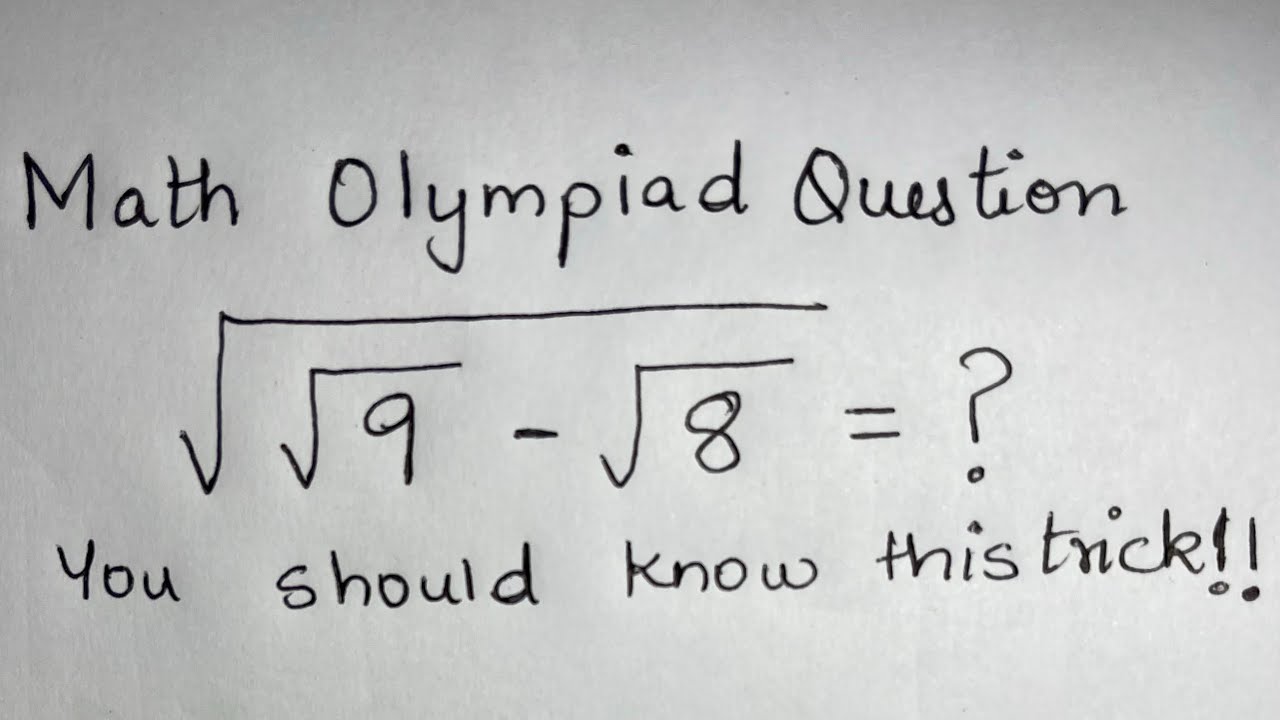 Math Olympiad Question
√(√9 - √8) = ?
You should know this trick!!